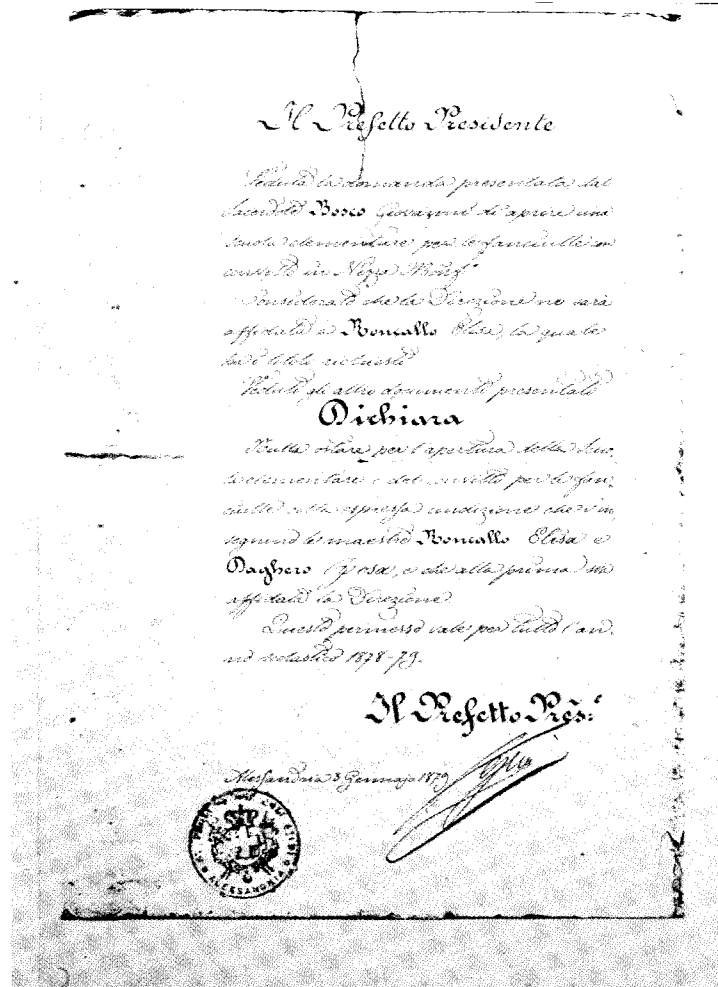 Il Prefetto Presidente
Veduta la domanda presentata dal
Sacerdote Bosco Giovanni di aprire una
scuola elementare per le fanciulle con
convitto in Nizza Monf.º
Considerato che la Direzione ne sarà
affidata a Roncallo Elisa, la quale
ha i titoli richiesti
Veduti gli altri documenti presentati
Dichiara
Nulla ostare per l'apertura della Scuo
la elementare e del convitto per le fan
ciulle colla espressa condizione che v'in
segnino le maestre Roncallo Elisa e
Daghero Rosa, e che alla prima sia
affidata la Direzione.
Questo permesso vale per tutto l'an
no scolastico 1878-79.
Il Prefetto Pres.e
Alessandria 3 Gennajo 1879
ALESSANDRIA